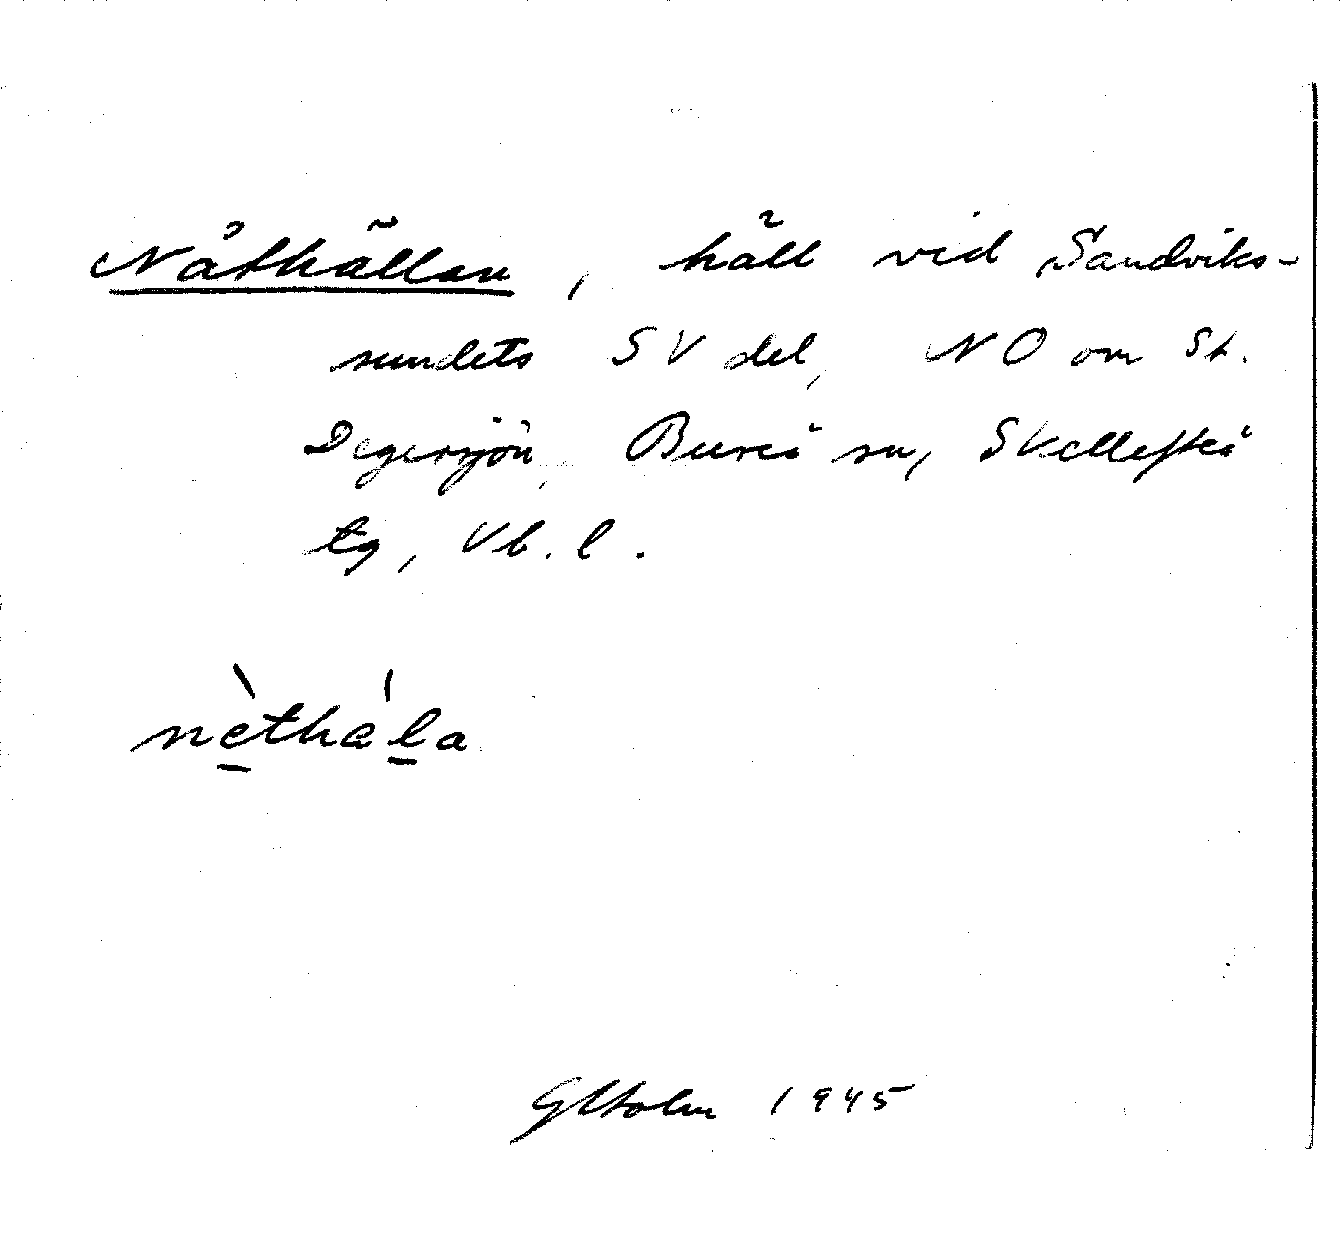 Nåthällan, häll vid Sandviks-
sundets SV del, NO om St.
Degersjön, Bureå sn, Skellefteå
tg, Vb. l.
nèthála
GHolm 1945